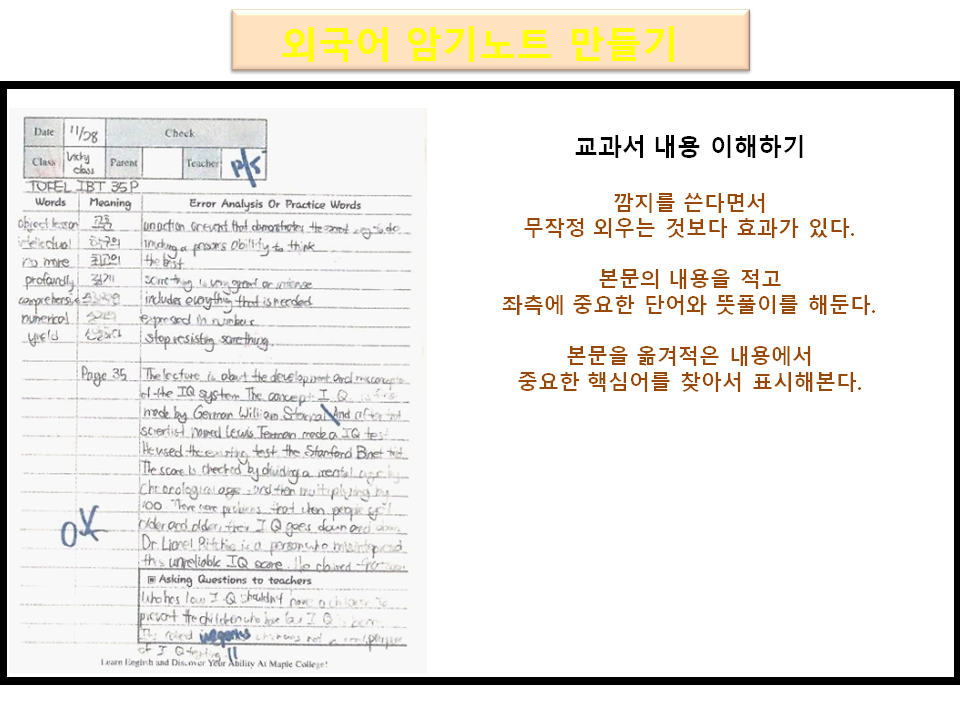 외국어 암기노트 만들기
Date 11/28 Check
Class Vicky class Parent Teacher P/S
TOFEL IBT 35P
Words Meaning Error Analysis Or Practice Words
object lesson 교훈 an action or event that demonstrates the correct way to do
intellectual 학구의 a person's ability to think
no more 최고의 the best
profoundly 깊게 something is very great or intense
comprehensive includes everything that is needed
numerical expressed in numbers
yield stop resisting something
Page 35 The lecture is about the development and
of the IQ system. The concept I Q is first
made by German William And after that
scientist named Lewis Terman made a IQ test
He used the existing test the Stanford Binet test
The score is checked by dividing a mental age by
chronological age and then multiplying by
100 There were problems that when people get
older and older, their I Q goes down and down
Dr. Lionel Ritchie is a person who
this unreliable IQ score. He claimed
Asking Questions to teachers
who has low I Q shouldn't have a children to
prevent the children who have low I Q
not a
of I Q testing
OK
Learn English and Discover Your Ability At Maple College!
교과서 내용 이해하기
깜지를 쓴다면서
무작정 외우는 것보다 효과가 있다.
본문의 내용을 적고
좌측에 중요한 단어와 뜻풀이를 해둔다.
본문을 옮겨적은 내용에서
중요한 핵심어를 찾아서 표시해본다.